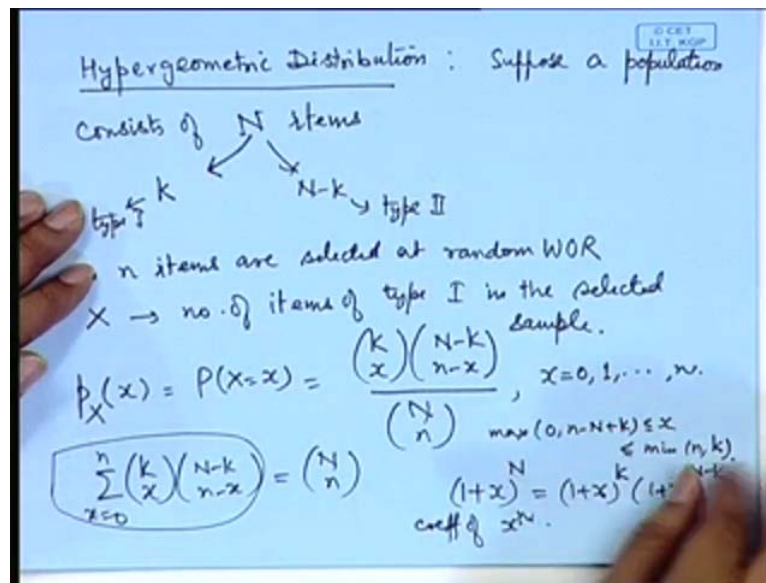 © CET
I.I.T. KGP
Hypergeometric Distribution : Suppose a population
consists of N items
k N-k → type II
type I
n items are selected at random WOR
X → no. of items of type I in the selected
sample.
p_X(x) = P(X=x) = \frac{\binom{k}{x}\binom{N-k}{n-x}}{\binom{N}{n}}, x=0,1,⋯,n.
max(0, n-N+k) ≤ x
≤ min(n,k).
\sum_{x=0}^{n} \binom{k}{x}\binom{N-k}{n-x} = \binom{N}{n}
(1+x)^N = (1+x)^k (1+
coeff of x^n.